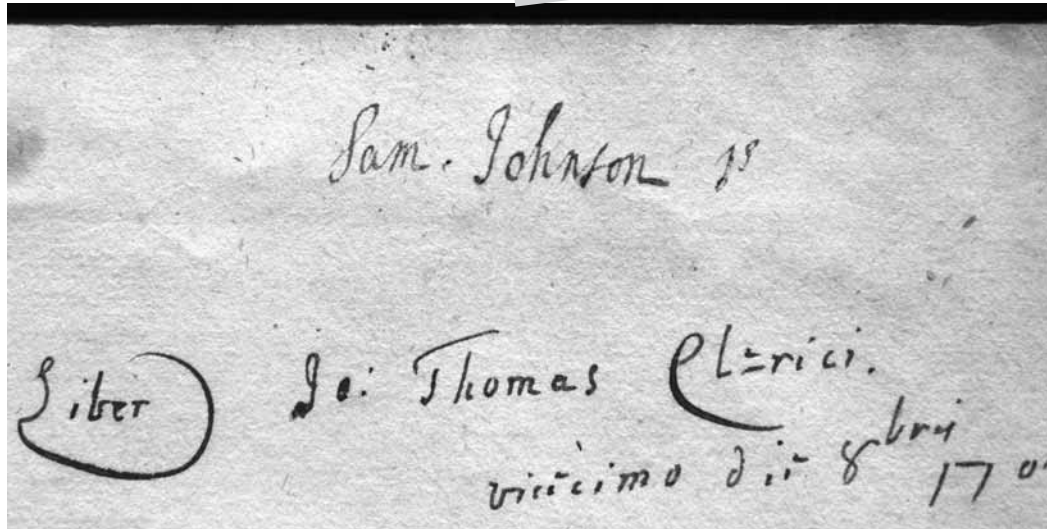 Sam. Johnson
Liber Jo: Thomas Clerici.
vicecimo die 8bris
170